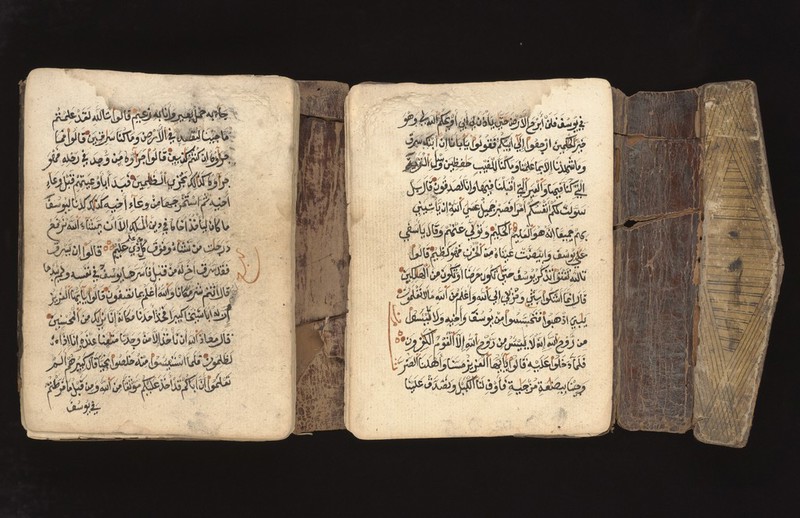 جاء به حمل بعير وانا به زعيم قالوا تالله لقد علمتم
ما جئنا لنفسد في الارض وما كنا سرقين قالوا فما
جزاؤه ان كنتم كذبين قالوا جزاؤه من وجد في رحله فهو
جزاؤه كذلك نجزي الظلمين فبدا باوعيتهم قبل وعاء
اخيه ثم استخرجها من وعاء اخيه كذلك كدنا ليوسف
ما كان لياخذ اخاه في دين الملك الا ان يشاء الله نرفع
درجت من نشاء وفوق كل ذي علم عليم قالوا ان يسرق
فقد سرق اخ له من قبل فاسرها يوسف في نفسه ولم يبدها
قال انتم شر مكانا والله اعلم بما تصفون قالوا يايها العزيز
ان له ابا شيخا كبيرا فخذ احدنا مكانه انا نراك من المحسنين
قال معاذ الله ان ناخذ الا من وجدنا متعنا عنده انا اذا
لظلمون فلما استيئسوا منه خلصوا نجيا قال كبيرهم الم
تعلموا ان اباكم قد اخذ عليكم موثقا من الله ومن قبل ما فرطتم
في يوسف
في يوسف فلن ابرح الارض حتى ياذن لي ابي او يحكم الله لي وهو
خير الحكمين ارجعوا الى ابيكم فقولوا يابانا ان ابنك سرق
وما شهدنا الا بما علمنا وما كنا للغيب حفظين وسئل القرية
التي كنا فيها والعير التي اقبلنا فيها وانا لصدقون قال بل
سولت لكم انفسكم امرا فصبر جميل عسى الله ان ياتيني
بهم جميعا انه هو العليم الحكيم وتولى عنهم وقال ياسفى
على يوسف وابيضت عيناه من الحزن فهو كظيم قالوا
تالله تفتؤا تذكر يوسف حتى تكون حرضا او تكون من الهلكين
قال انما اشكوا بثي وحزني الى الله واعلم من الله ما لا تعلمون
يبني اذهبوا فتحسسوا من يوسف واخيه ولا تيئسوا
من روح الله انه لا يايئس من روح الله الا القوم الكفرون
فلما دخلوا عليه قالوا يايها العزيز مسنا واهلنا الضر
وجئنا ببضعة مزجية فاوف لنا الكيل وتصدق علينا